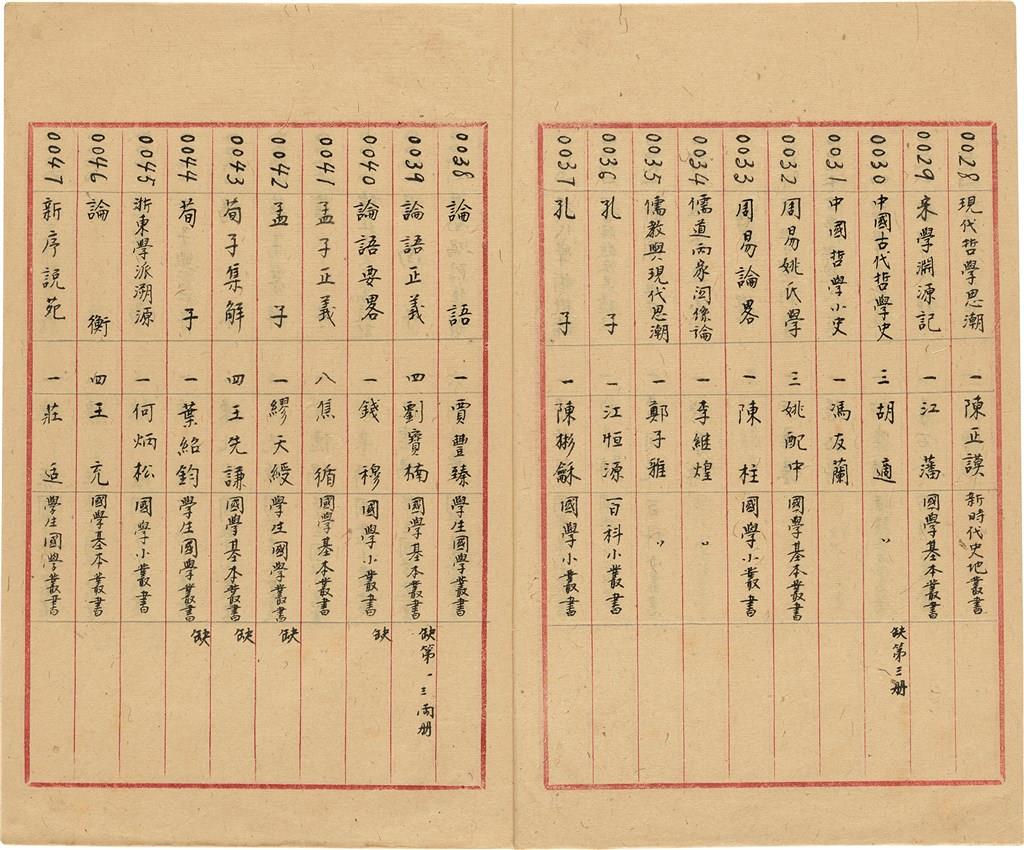 0028 現代哲學思潮 一 陳正謨 新時代史地叢書
0029 宋學淵源記 一 江藩 國學基本叢書
0030 中國古代哲學史 三 胡適 〃 缺第三册
0031 中國哲學小史 一 馮友蘭
0032 周易姚氏學 三 姚配中 國學基本叢書
0033 周易論畧 一 陳柱 國學小叢書
0034 儒道兩家関係論 一 李維煌 〃
0035 儒教與現代思潮 一 鄭子雅 〃
0036 孔子 一 江恒源 百科小叢書
0037 孔子 一 陳彬龢 國學小叢書
0038 論語 一 賈豐臻 學生國學叢書
0039 論語正義 四 劉寶楠 國學基本叢書 缺第一三両册
0040 論語要畧 一 錢穆 國學小叢書 缺
0041 孟子正義 八 焦循 國學基本叢書
0042 孟子 一 繆天綬 學生國學叢書 缺
0043 荀子集解 四 王先謙 國學基本叢書 缺
0044 荀子 一 葉紹鈞 學生國學叢書 缺
0045 浙東學派溯源 一 何炳松 國學小叢書
0046 論衡 四 王充 國學基本叢書
0047 新序説苑 一 莊适 學生國學叢書